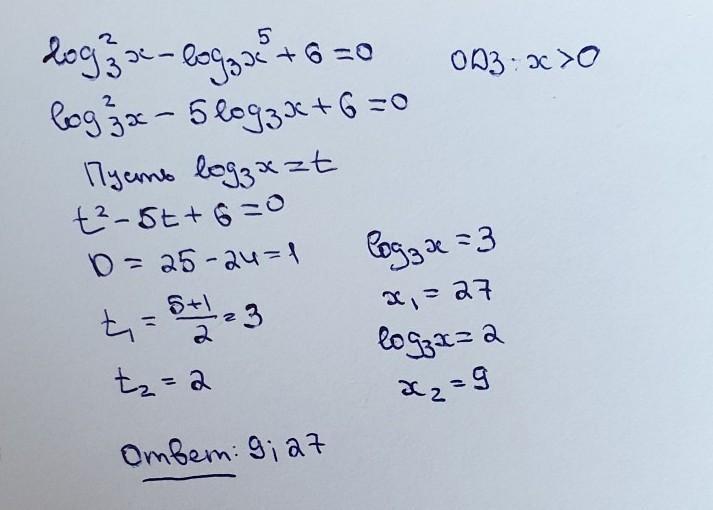 log₃²x − log₃x⁵ + 6 = 0 ОДЗ: x > 0
log₃²x − 5log₃x + 6 = 0
Пусть log₃x = t
t² − 5t + 6 = 0
D = 25 − 24 = 1
t₁ = (5+1)/2 = 3
t₂ = 2
log₃x = 3
x₁ = 27
log₃x = 2
x₂ = 9
Ответ: 9; 27